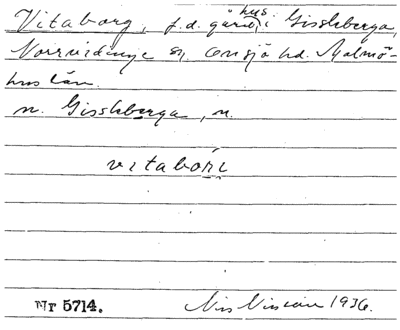 hus
Vitaborg, f.d. gård, i Gissleberga,
Norrvidinge sn, Onsjö hd. Malmö-
hus län.
n. Gissleberga, n.
vitabori
Nr 5714. Nils Nilsson 1936.